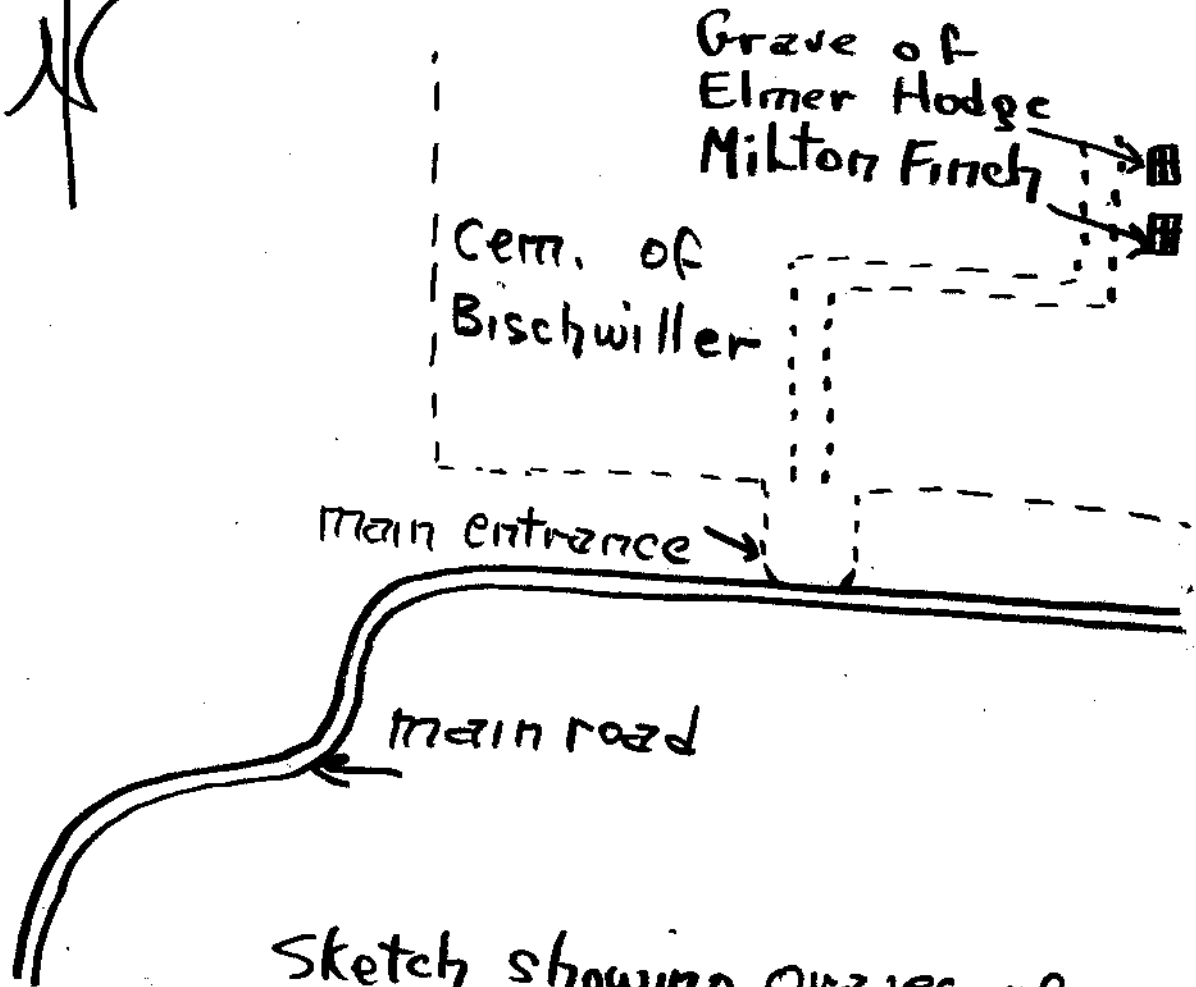 N
Grave of
Elmer Hodge
Milton Finch
Cem. of
Bischwiller
main entrance
main road
Sketch showing